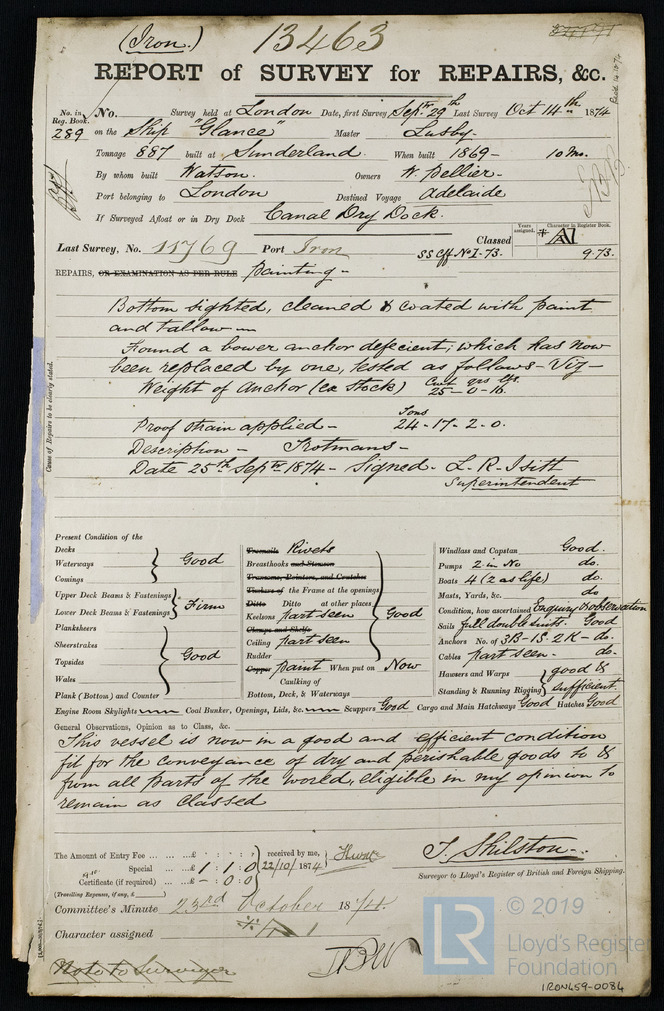 (Iron.) 13463
REPORT of SURVEY for REPAIRS, &c.
No. in Reg. Book. 289
No. Survey held at London Date, first Survey Sepr 29th Last Survey Oct 14th 1874
on the Ship "Glance" Master Lusby
Tonnage 887 built at Sunderland When built 1869 - 10 Mo.
By whom built Watson. Owners W. Pellier.
Port belonging to London Destined Voyage Adelaide
If Surveyed Afloat or in Dry Dock Canal Dry Dock.
Last Survey, No. 11769 Port Iron SS Cff No 1-73. Classed
Years assigned. Character in Register Book. A1 9.73.
REPAIRS, OR EXAMINATION AS PER RULE painting -
Cause of Repairs to be clearly stated.
Bottom sighted, cleaned & coated with paint
and tallow
Found a bower anchor deficient; which has now
been replaced by one, tested as follows - Viz -
Weight of Anchor (ex Stock) Cwt qrs lbs. 25-0-16.
Proof strain applied - Tons 24-17-2-0.
Description - Trotmans -
Date 25th Sepr 1874 - Signed - L. R. Isitt
Superintendent
Present Condition of the
Decks
Waterways Good
Comings
Upper Deck Beams & Fastenings
Lower Deck Beams & Fastenings Firm
Planksheers
Sheerstrakes
Topsides Good
Wales
Plank (Bottom) and Counter
Treenails Rivets
Breasthooks and Stemson
Transoms, Pointers, and Crutches
Timbers of the Frame at the openings
Ditto Ditto at other places
Keelsons part seen Good
Clamps and Shelfs
Ceiling part seen
Rudder
Copper paint When put on Now
Caulking of
Bottom, Deck, & Waterways
Windlass and Capstan Good.
Pumps 2 in No do.
Boats 4 (2 as life) do.
Masts, Yards, &c. do
Condition, how ascertained Enquiry & observation
Sails full double suits. Good
Anchors No. of 3B-1S.2K - do.
Cables part seen. do.
Hawsers and Warps good &
Standing & Running Rigging sufficient.
Engine Room Skylights Coal Bunker, Openings, Lids, &c. Scuppers Good Cargo and Main Hatchways Good Hatches Good
General Observations, Opinion as to Class, &c.
This vessel is now in a good and efficient condition
fit for the conveyance of dry and perishable goods to &
from all parts of the world, eligible in my opinion to
remain as classed
The Amount of Entry Fee ... ... £ : : received by me,
Special ... ... £ 1 : 1 : 0 22/10/1874
Certificate (if required) ... £ - : 0 : 0
(Travelling Expenses, if any, £ )
T. Skilston
Surveyor to Lloyd's Register of British and Foreign Shipping.
Committee's Minute 23rd October 1874.
Character assigned A1
Note to Surveyor
© 2019
LR
Lloyd's Register
Foundation
IRON459-0084